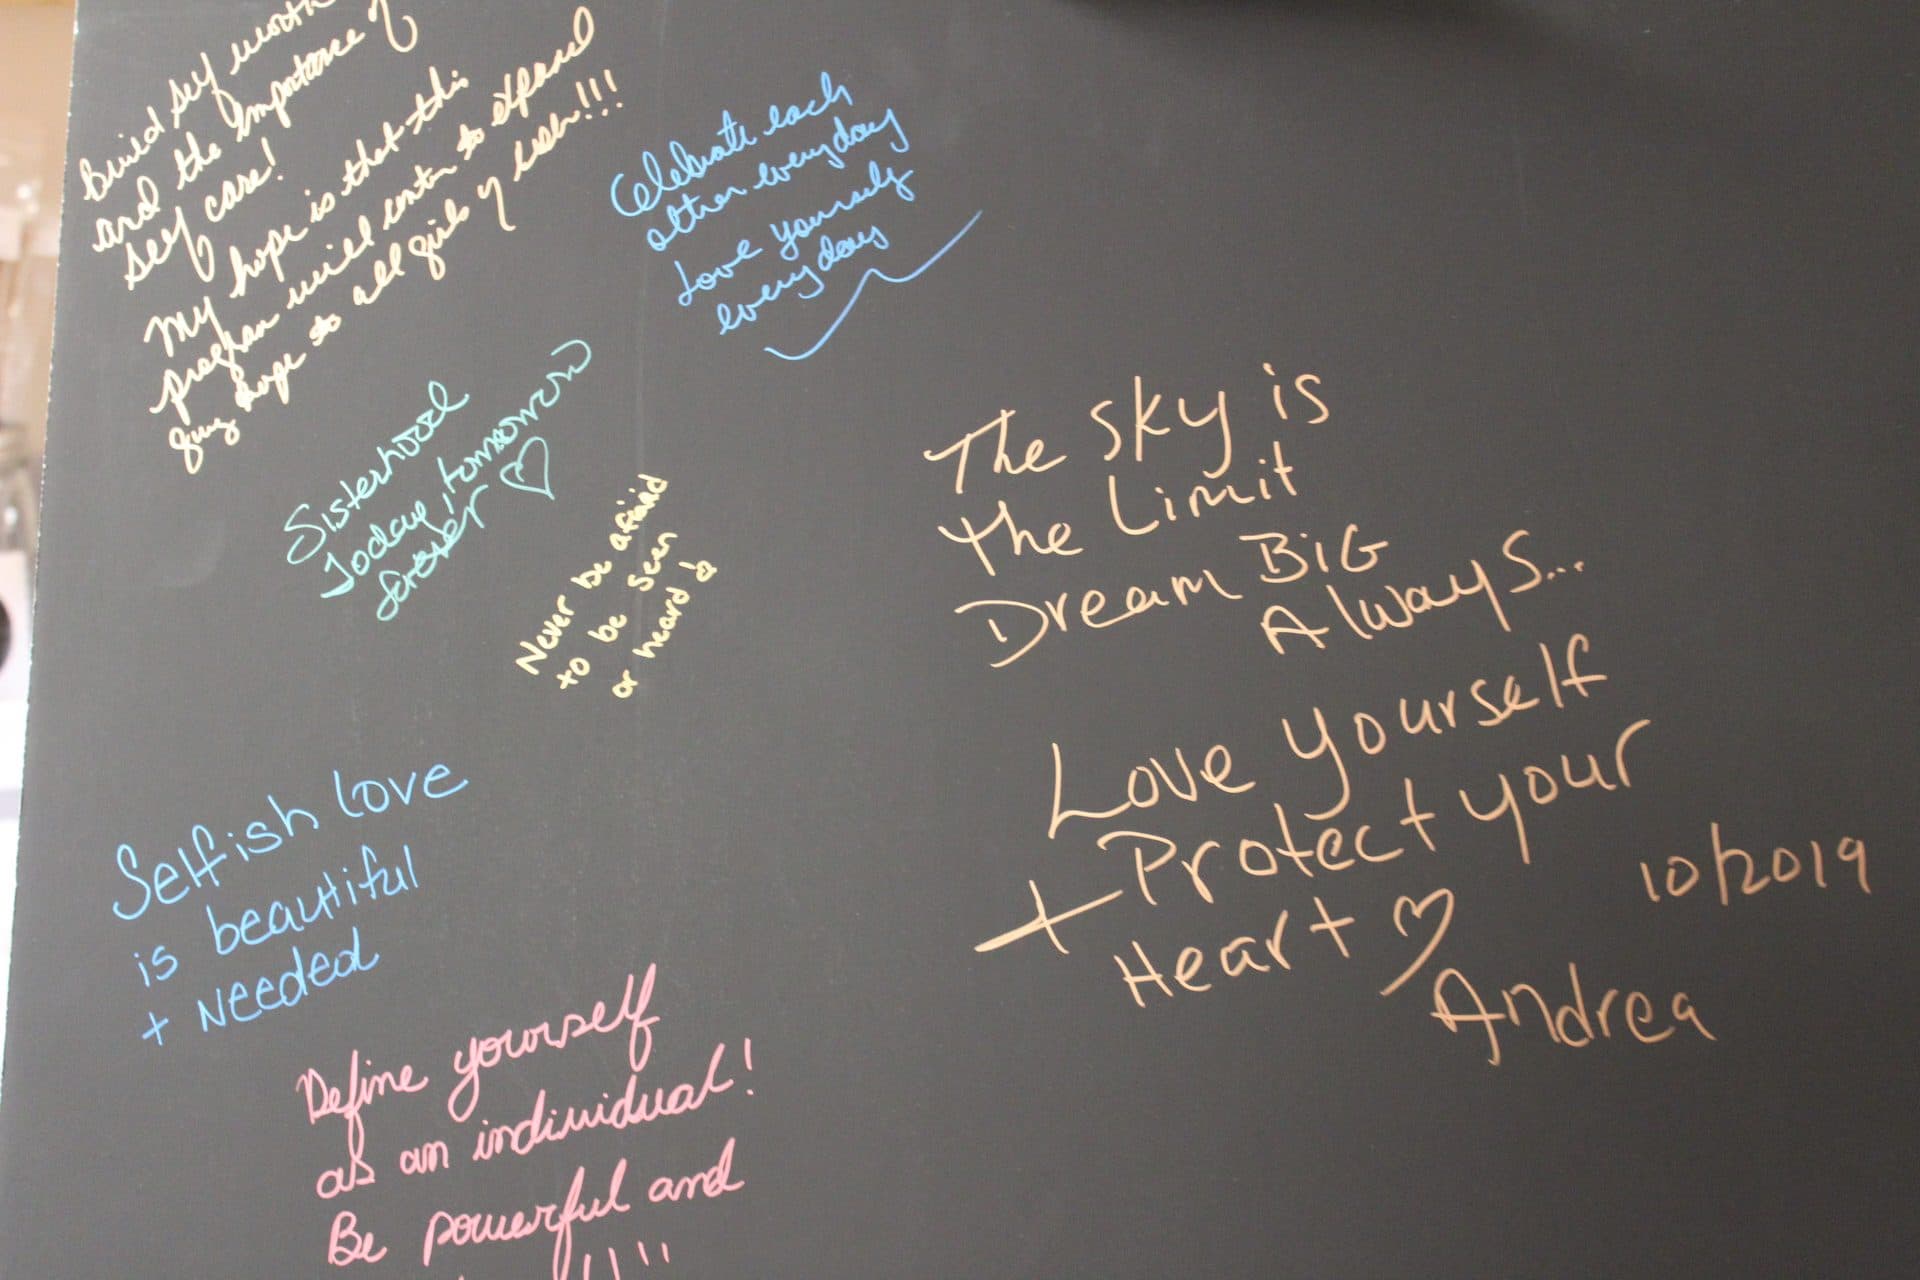 Build self worth
and the importance of
self care!
My hope is that this
program will to expand
hope to all girls of !!!
Celebrate each
other everyday
Love yourself
everyday
Sisterhood
Today, tomorrow
forever ♡
Never be afraid
to be seen
or heard
The sky is
the Limit
Dream BiG
Always...
Love yourself
+ Protect your
Heart ♡
10/2019
Andrea
Selfish love
is beautiful
+ Needed
Define yourself
as an individual!
Be powerful and